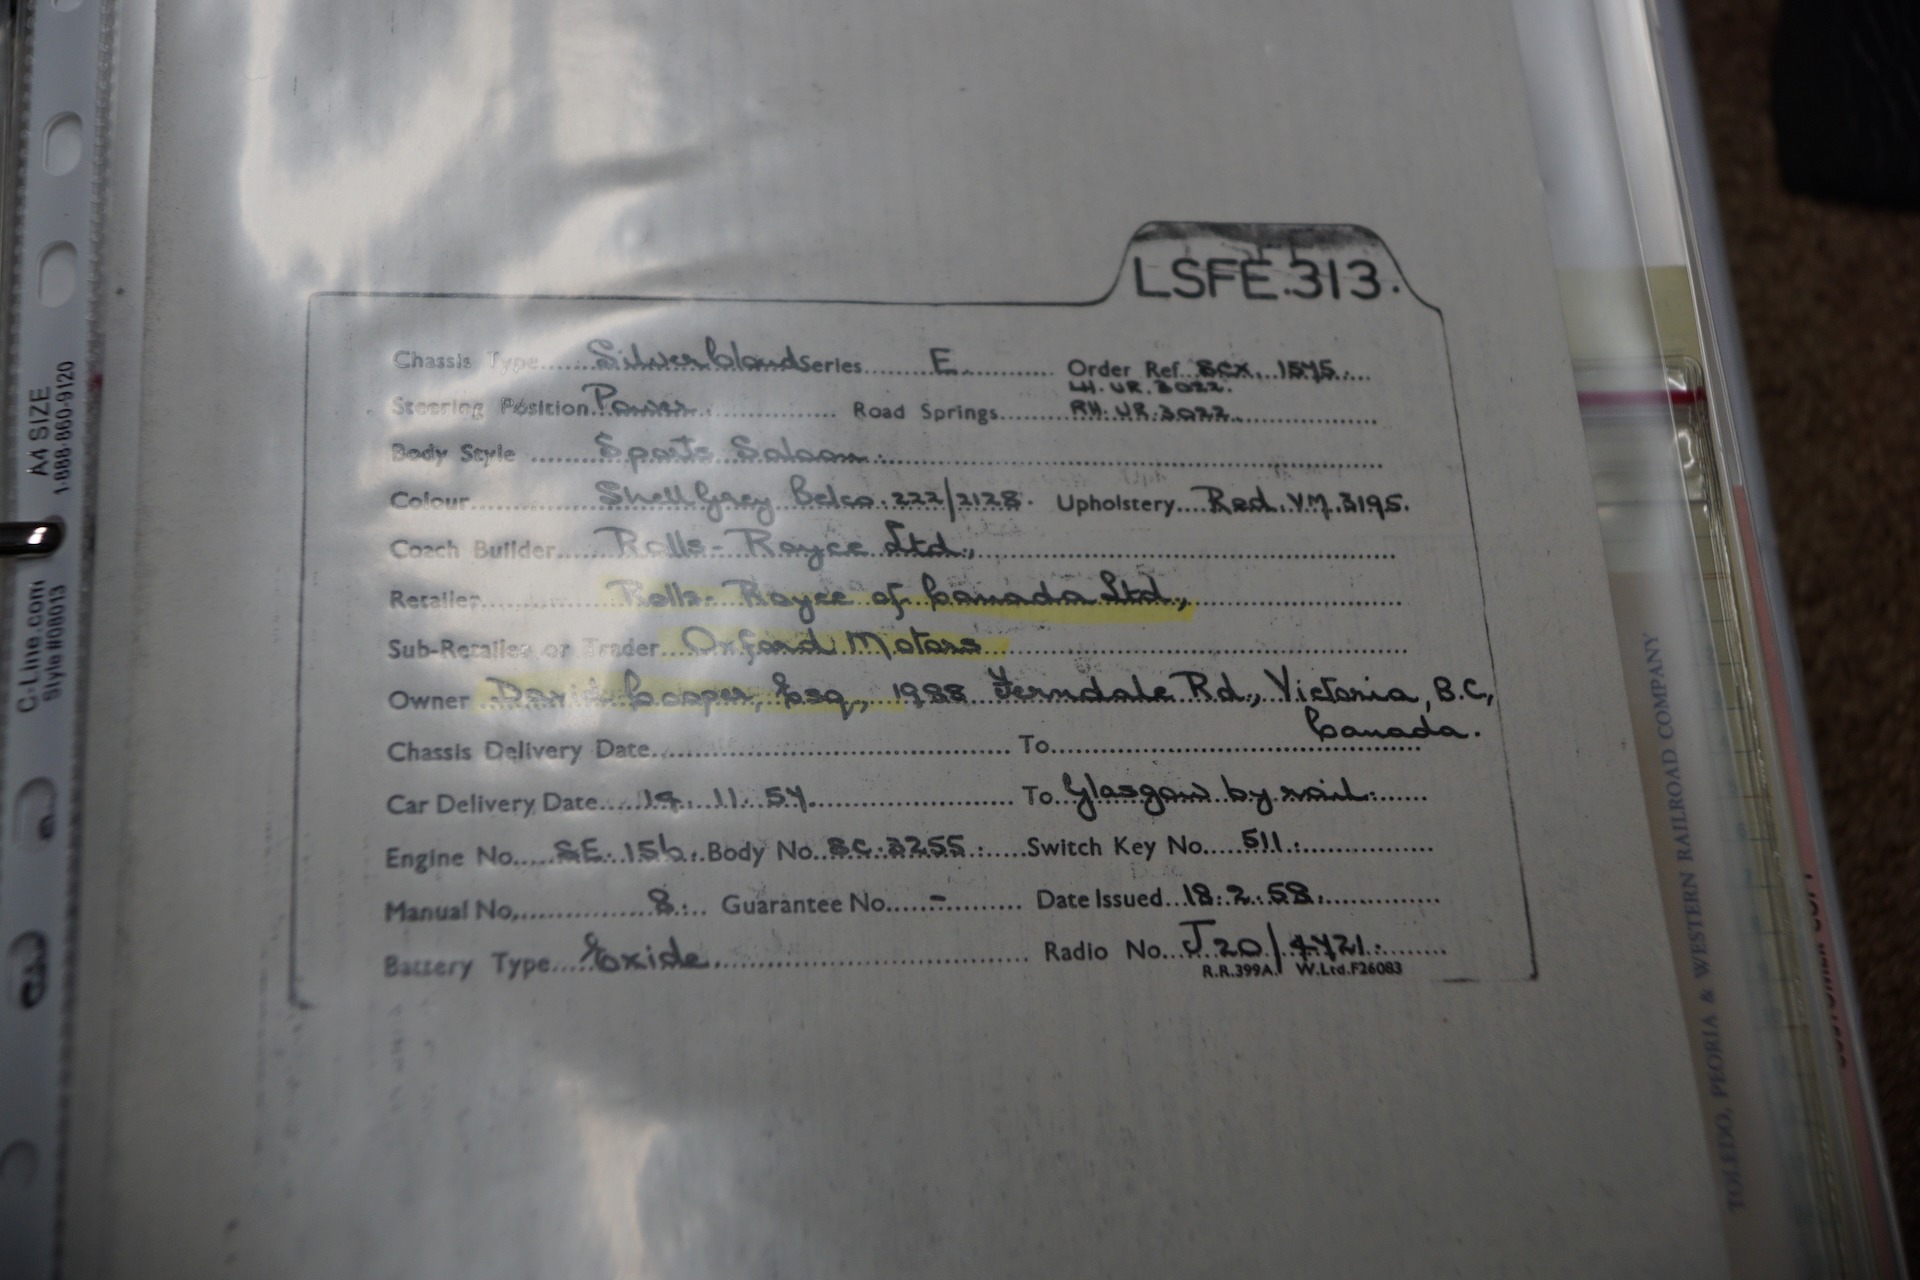 LSFE.313.
Chassis Type Silver Cloud Series E Order Ref. SCX. 1545.
LH. UR. 3022.
Steering Position Power. Road Springs RH. UR. 3022.
Body Style Sports Saloon.
Colour Shell Grey Belco. 222/2128. Upholstery Red. VM. 3195.
Coach Builder Rolls-Royce Ltd.,
Retailer Rolls-Royce of Canada Ltd.,
Sub-Retailer or Trader Oxford Motors
Owner David Cooper, Esq., 1988 Ferndale Rd., Victoria, B.C,
Canada.
Chassis Delivery Date To
Car Delivery Date 14. 11. 57. To Glasgow by rail.
Engine No. SE. 156. Body No. SC. 3255. Switch Key No. 511.
Manual No. 8. Guarantee No. - Date Issued 18. 2. 58.
Battery Type Exide. Radio No. J 20/4421.
R.R.399A. W.Ltd.F26083
A4 SIZE
1-888-860-9120
C-Line.com
Style #08013
TOLEDO, PEORIA & WESTERN RAILROAD COMPANY